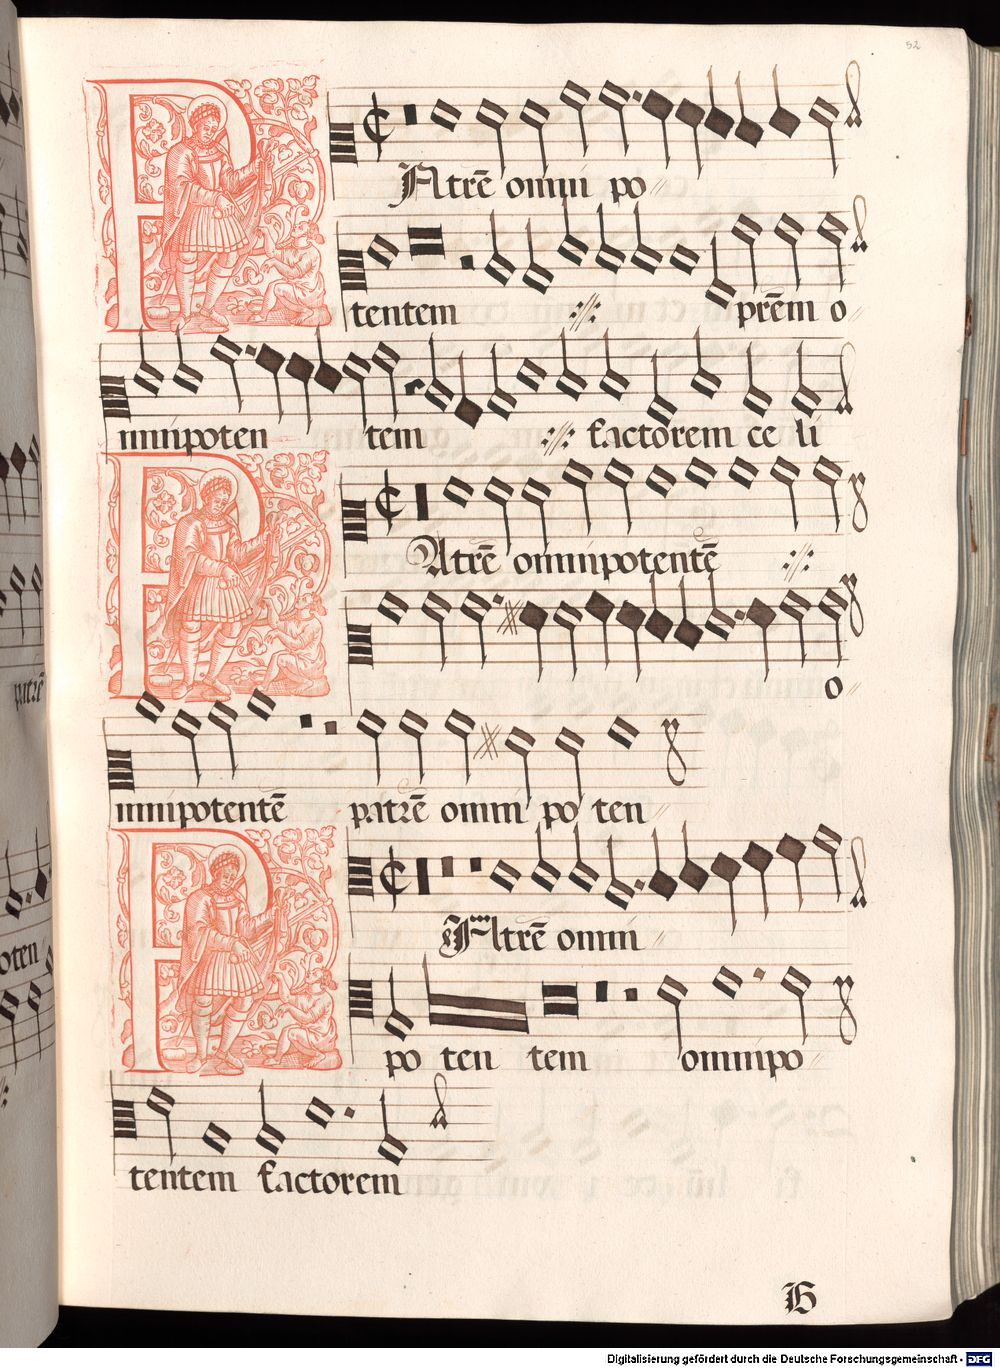 52
PAtrē omni po //
tentem ://: prēm o //
mnipoten tem ://: factorem ce li
PAtrē omnipotentē ://:
o //
mnipotentē patrē omni po ten //
PAtrē omni //
po ten tem omnipo //
tentem factorem
patrē
oten
H
Digitalisierung gefördert durch die Deutsche Forschungsgemeinschaft - DFG